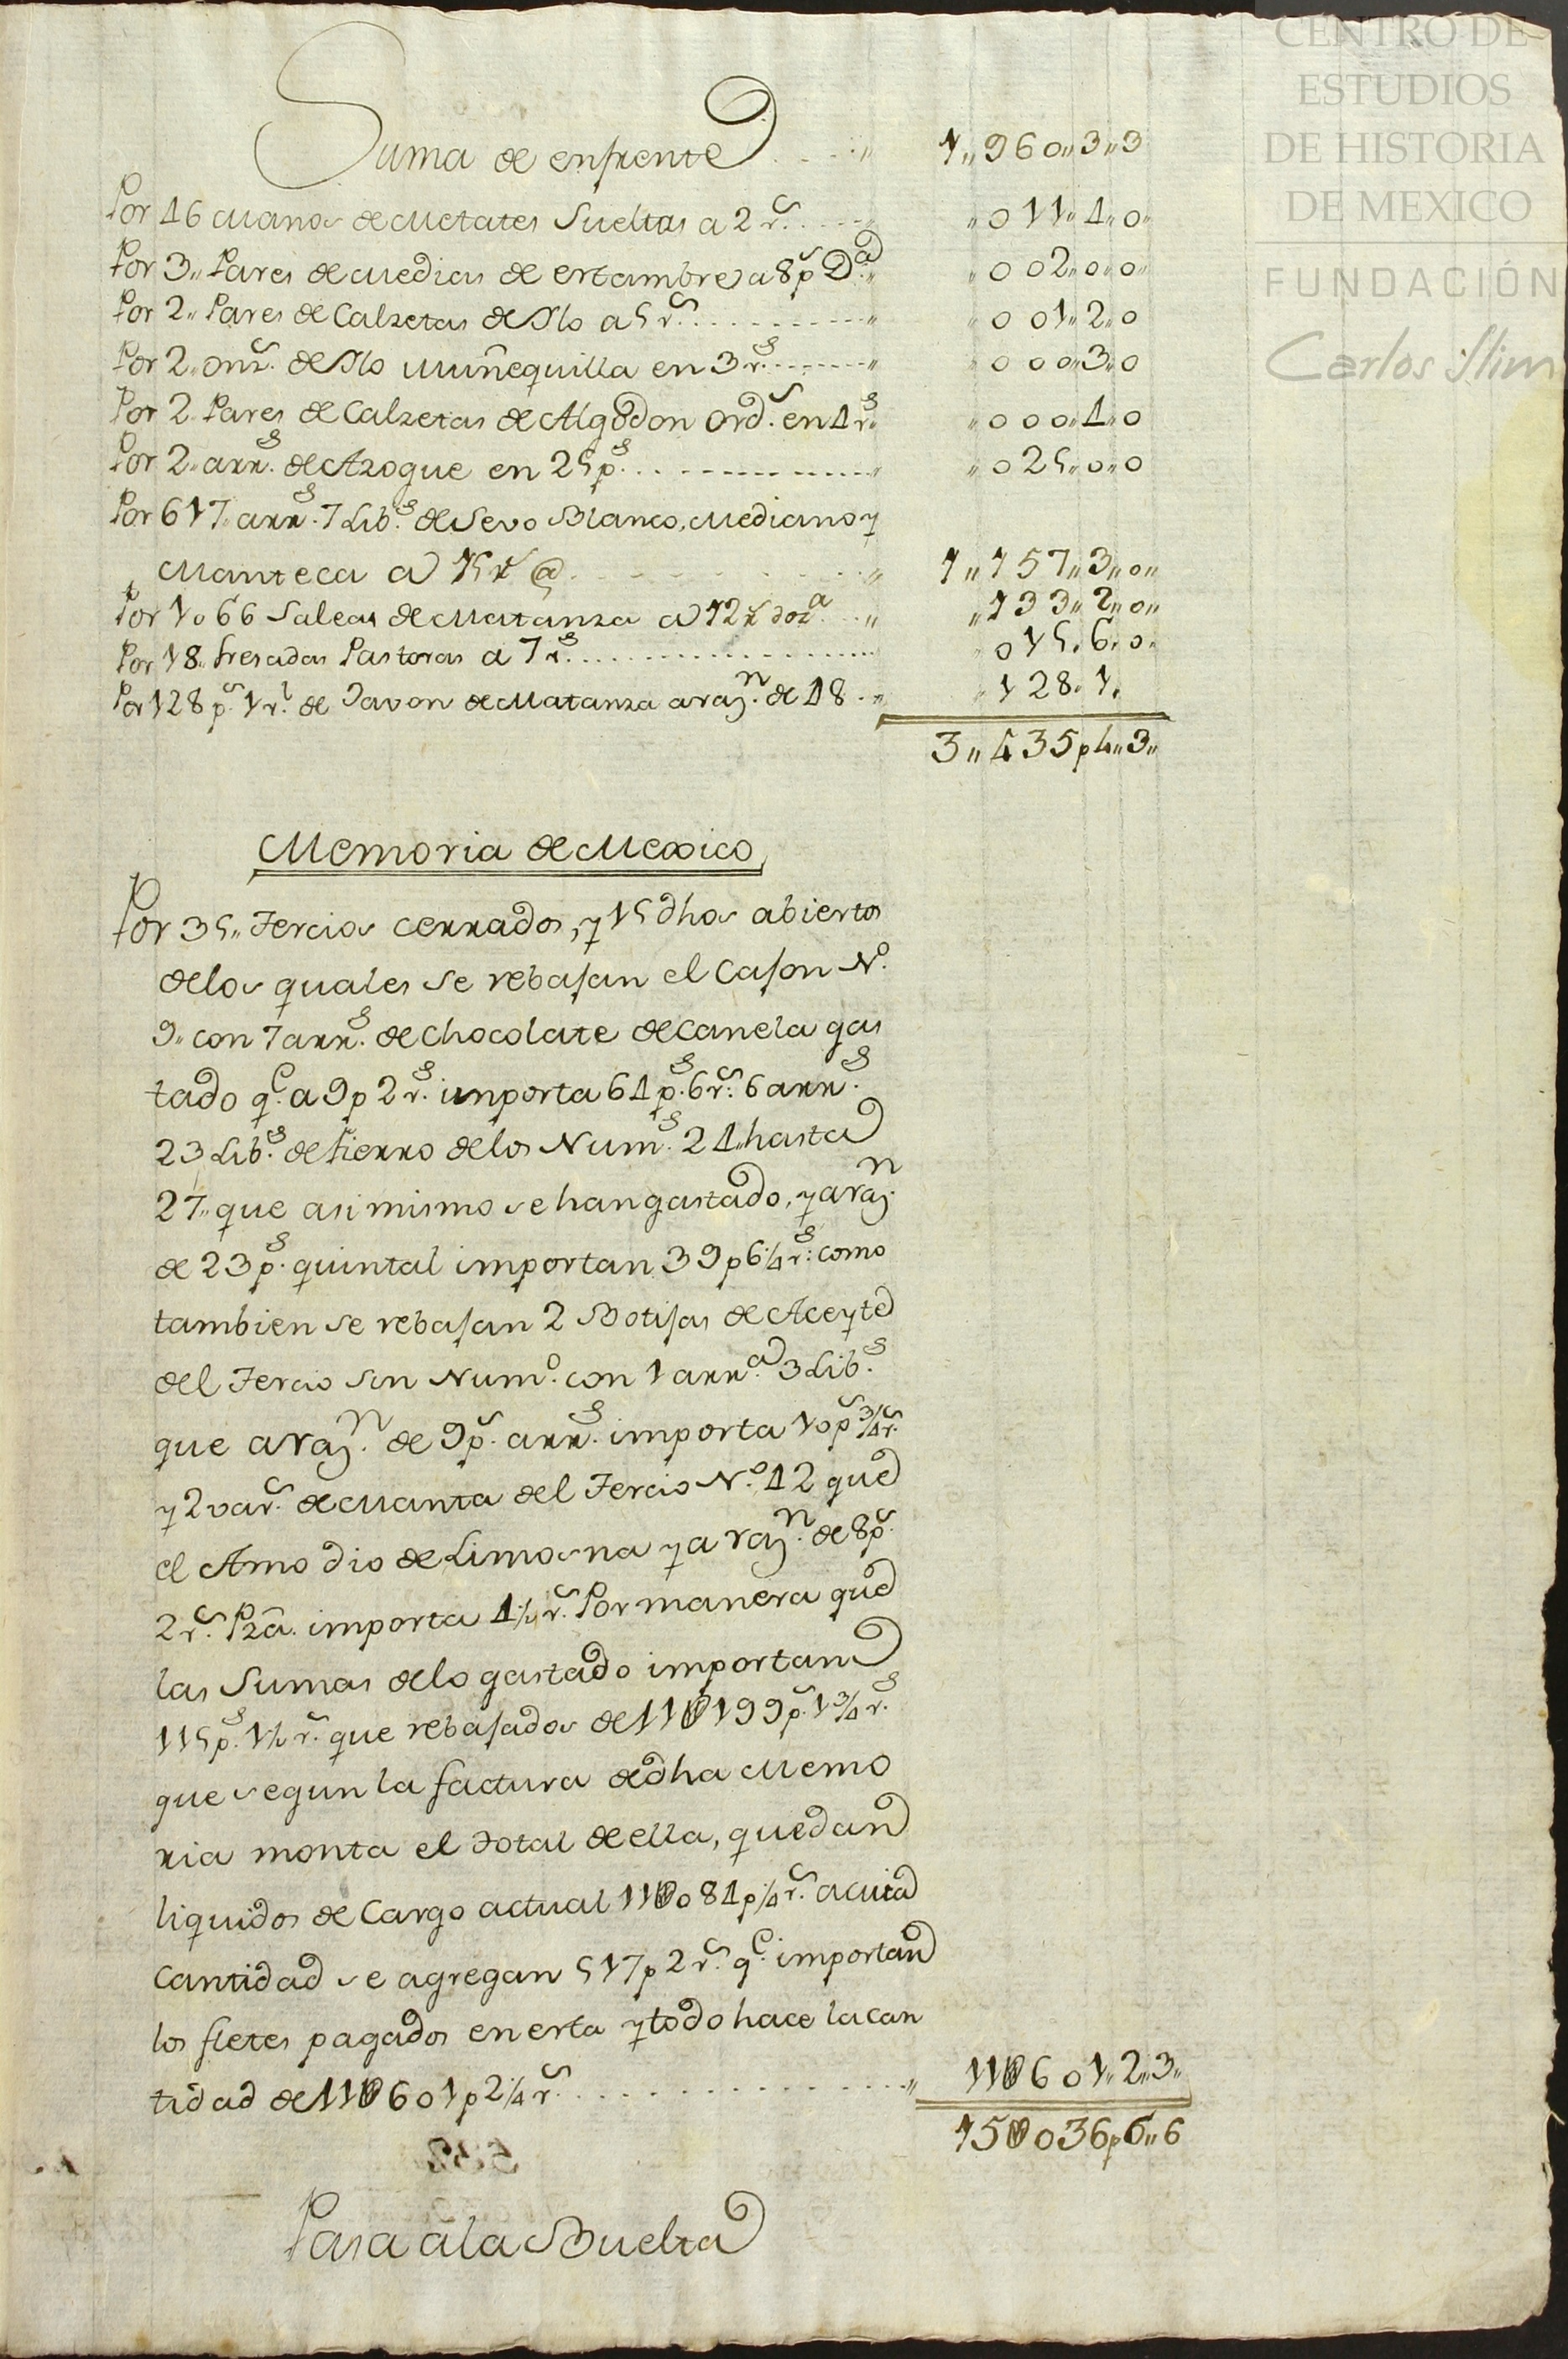 CENTRO DE
ESTUDIOS
DE HISTORIA
DE MEXICO
FUNDACIÓN
Carlos Slim
Suma de enfrente 1,,960,,3,,3
Por 46 manos de Metates Sueltas a 2 r.s ,,011,,4,,0,,
Por 3,, Pares de Medias de estambre a 8 p.s D.a ,,002,,0,,0,,
Por 2,, Pares de Calzetas de Ilo a 5 r.s ,,001,,2,,0
Por 2,, onz.s de Ilo Muñequilla en 3 r.s ,,000,,3,,0
Por 2 Pares de Calzetas de Algodon ord.s en 4 r.s ,,000,,4,,0
Por 2,, arr.s de Azogue en 25 p.s ,,025,,0,,0
Por 617,, arr.s 7 Lib.s de Sevo Blanco, Mediano y
Manteca a 15 r @ 1,,157,,3,,0,,
Por 1066 Saleas de Matanza a 12 r doz.a ,,133,,2,,0,,
Por 18,, fresadas Pastoras a 7 r.s 015,,6,,0,,
Por 128 p.s 1 r.l de Javon de Matanza a raz.n de 18 ,,128,,1,,
3,,435 p 4,,3,,
Memoria de Mexico
Por 35,, Tercios cerrados, y 15 dhos abiertos
de los quales se rebajan el Cajon N.o
9,, con 7 arr.s de Chocolate de Canela gas
tado q.e a 9 p 2 r.s importa 64 p.s 6 r.s 6 arr.s
23 Lib.s de fierro de los Num.s 24 hasta
27,, que asi mismo se han gastado, y a raz.n
de 23 p.s quintal importan 39 p 6 1/4 r.s como
tambien se rebajan 2 Botijas de Aceyte
del Tercio sin Num.o con 1 arr.a 3 Lib.s
que a raz.n de 9 p.s arr.s importa 10 p.s 3/4 r.s
y 2 var.s de Manta del Tercio N.o 42 que
el Amo dio de Limosna y a raz.n de 8 p.s
2 r.s Pza. importa 4 1/2 r.s Por manera que
las Sumas de lo gastado importan
115 p.s 1 1/2 r.s que rebajados de 11U199 p.s 1 3/4 r.s
que segun la factura de dha Memo
ria monta el total de ella, quedan
liquidos de Cargo actual 11U084 p 1/4 r.s a cuia
cantidad se agregan 517 p 2 r.s q.e importan
los fletes pagados en esta y todo hace la can
tidad de 11U601 p 2 1/4 r.s 11U601,,2,,3,,
15U036 p 6,,6
Pasa a la Buelta